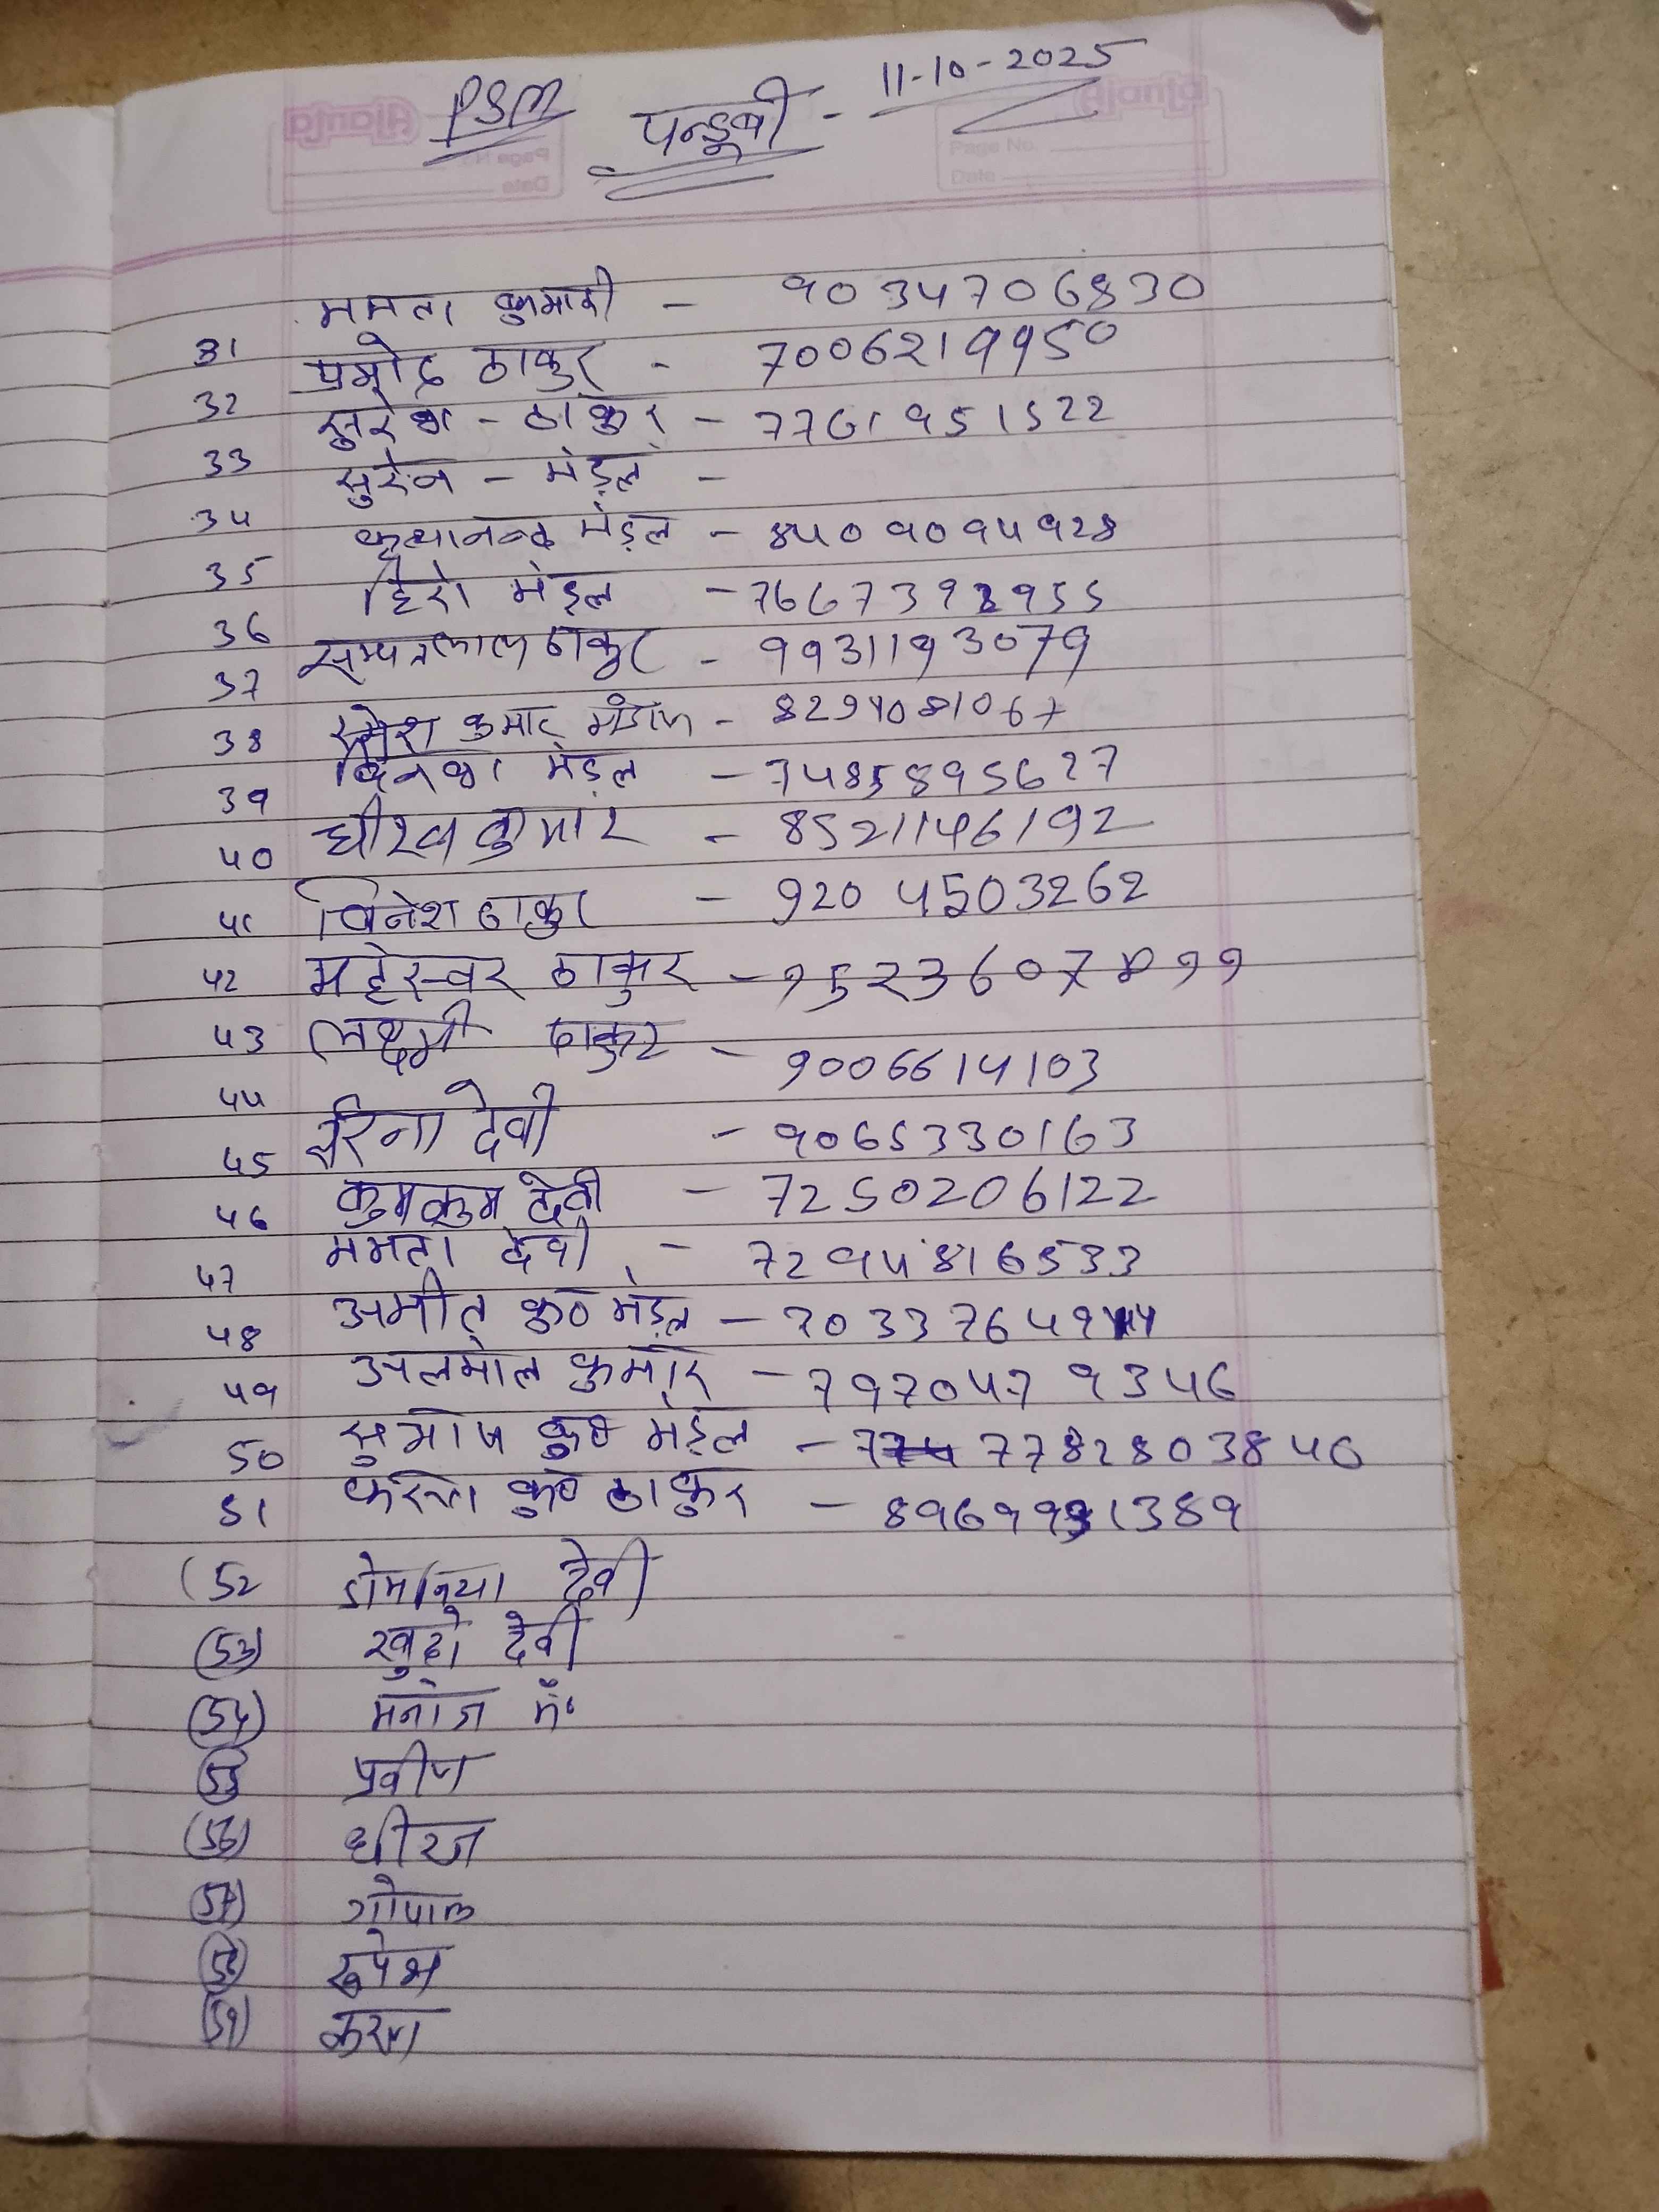 PSM पन्डूबी - 11-10-2025
31 ममता कुमारी - 9034706830
32 प्रमोद ठाकुर - 7006219950
33 सुरेश - ठाकुर - 7761951522
34 सुरेन - मंड़ल -
35 कृत्यानन्द मंड़ल - 8409094928
36 हिरो मंड़ल - 7667393955
37 सम्पतलाल ठाकुर - 9931193079
38 रमेश कुमार मंडल - 8294081067
39 दिनेश मंड़ल - 7485895627
40 धीरज कुमार - 8521146192
41 विनेश ठाकुर - 9204503262
42 महेस्वर ठाकुर - 9523607899
43 लक्ष्मी ठाकुर - 9006614103
44
45 रिना देवी - 9065330163
46 कुमकुम देवी - 7250206122
47 ममता देवी - 7294816533
48 अमीत कु० मंड़ल - 7033764944
49 अनमोल कुमार - 7970479346
50 सुभाष कु० मंड़ल - 7782803840
51 करण कु० ठाकुर - 8969991389
(52 डोमनिया देवी
(53) खुदो देवी
(54) मनोज मं०
(55 प्रवीण
(56) धीरज
(57) गोपाल
(58) रूपेश
(59) करण